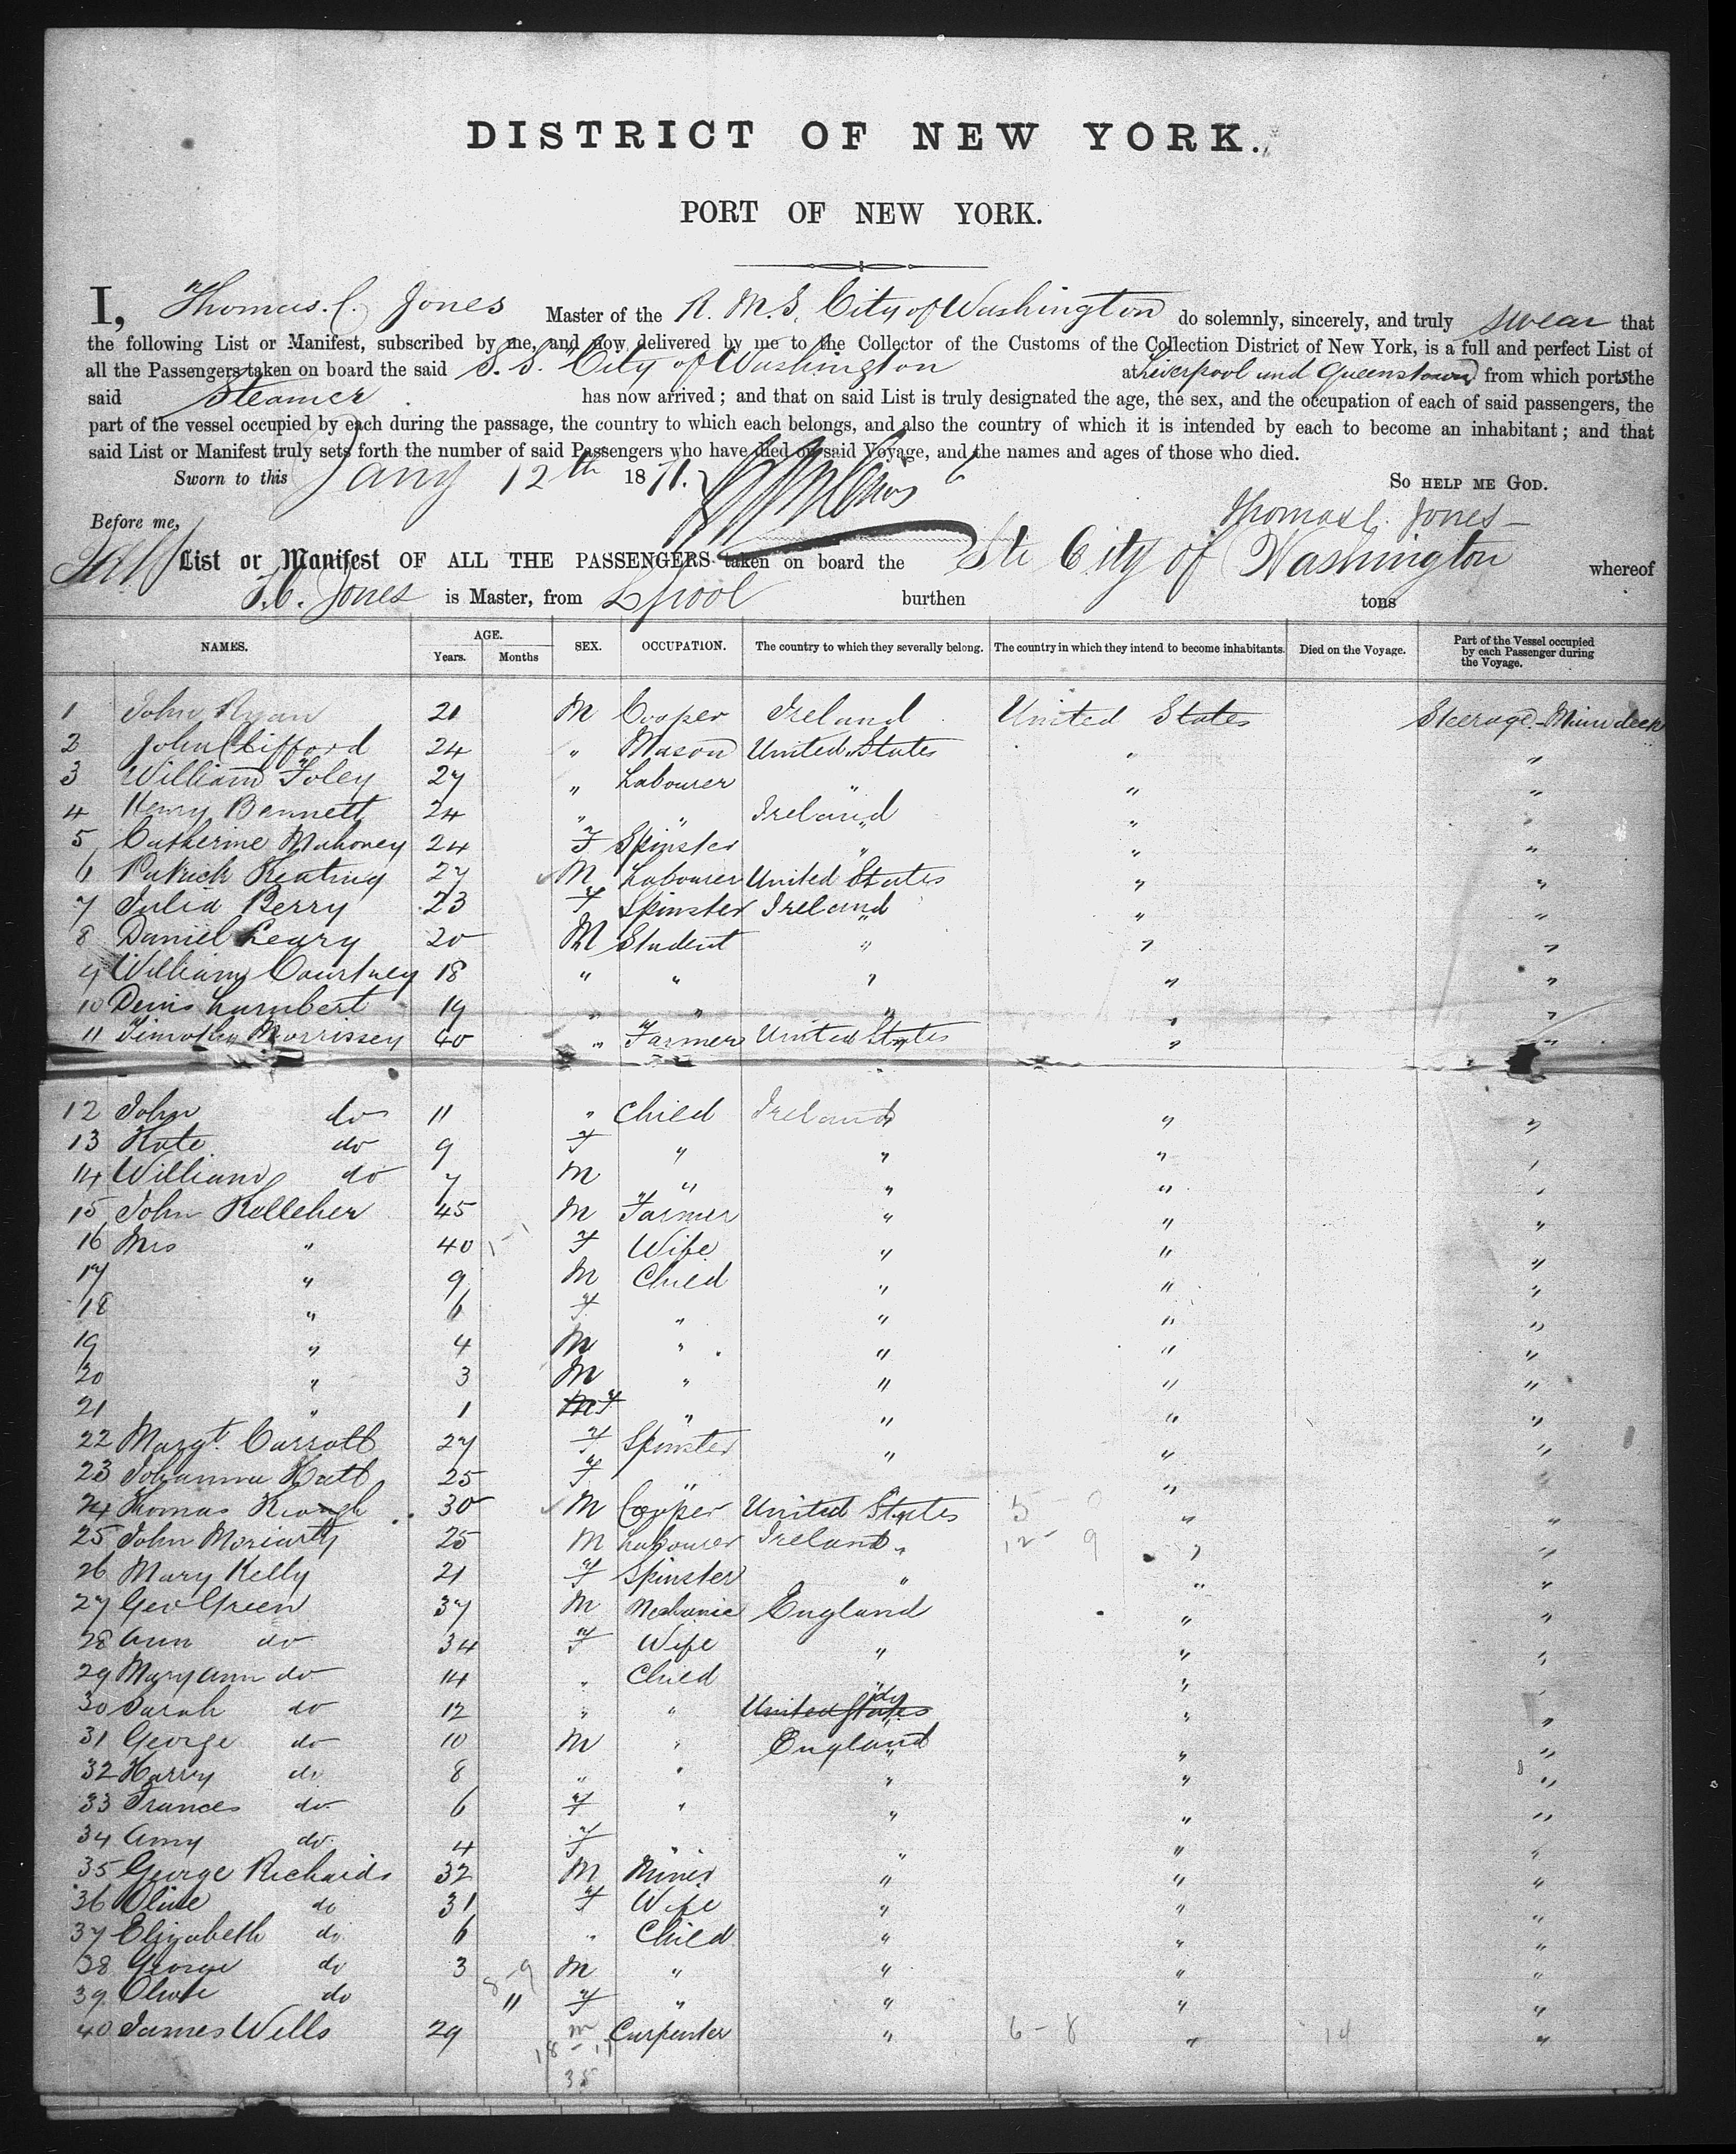 DISTRICT OF NEW YORK.
PORT OF NEW YORK.
I, Thomas. C. Jones Master of the R. M. S. City of Washington do solemnly, sincerely, and truly swear that
the following List or Manifest, subscribed by me, and now delivered by me to the Collector of the Customs of the Collection District of New York, is a full and perfect List of
all the Passengers taken on board the said S. S. City of Washington at Liverpool and Queenstown from which ports the
said Steamer has now arrived; and that on said List is truly designated the age, the sex, and the occupation of each of said passengers, the
part of the vessel occupied by each during the passage, the country to which each belongs, and also the country of which it is intended by each to become an inhabitant; and that
said List or Manifest truly sets forth the number of said Passengers who have died on said Voyage, and the names and ages of those who died.
Sworn to this Jany 12th 1871. So HELP ME GOD.
Before me, Thomas C. Jones
List or Manifest OF ALL THE PASSENGERS taken on board the Str City of Washington whereof
T. C. Jones is Master, from Lpool burthen tons
NAMES. AGE. Years. Months SEX. OCCUPATION. The country to which they severally belong. The country in which they intend to become inhabitants. Died on the Voyage. Part of the Vessel occupied by each Passenger during the Voyage.
1 John Ryan 21 M Cooper Ireland United States Steerage-Main deck
2 John Clifford 24 " Mason United States " "
3 William Foley 27 " Labourer " " "
4 Henry Bennett 24 " " Ireland " "
5 Catherine Mahoney 24 F Spinster " " "
6 Patrick Keating 27 M Labourer United States " "
7 Julia Berry 23 F Spinster Ireland " "
8 Daniel Leary 20 M Student " " "
9 William Courtney 18 " " " " "
10 Denis Lambert 19 " " " " "
11 Timothy Morrissey 40 " Farmer United States " "
12 John do 11 " Child Ireland " "
13 Kate do 9 F " " " "
14 William do 7 M " " " "
15 John Kelleher 45 M Farmer " " "
16 Mrs " 40 F Wife " " "
17 " 9 M Child " " "
18 " 6 F " " " "
19 " 4 M " " " "
20 " 3 M " " " "
21 " 1 M F " " " "
22 Margt. Carroll 27 F Spinster " " "
23 Johanna Hall 25 F " " "
24 Thomas Keough 30 M Cooper United States " "
25 John Moriarty 25 M Labourer Ireland " "
26 Mary Kelly 21 F Spinster " " "
27 Geo Green 37 M Mechanic England " "
28 Ann do 34 F Wife " " "
29 Mary Ann do 14 " Child " " "
30 Sarah do 12 " " United States do " "
31 George do 10 M " England " "
32 Harry do 8 " " " " "
33 Frances do 6 F " " " "
34 Amy do 4 F " " " "
35 George Richards 32 M Miner " " "
36 Olive do 31 F Wife " " "
37 Elizabeth do 6 " Child " " "
38 George do 3 M " " " "
39 Olive do 11 F " " " "
40 James Wells 29 m Carpenter " 6-8 " 14 "
38